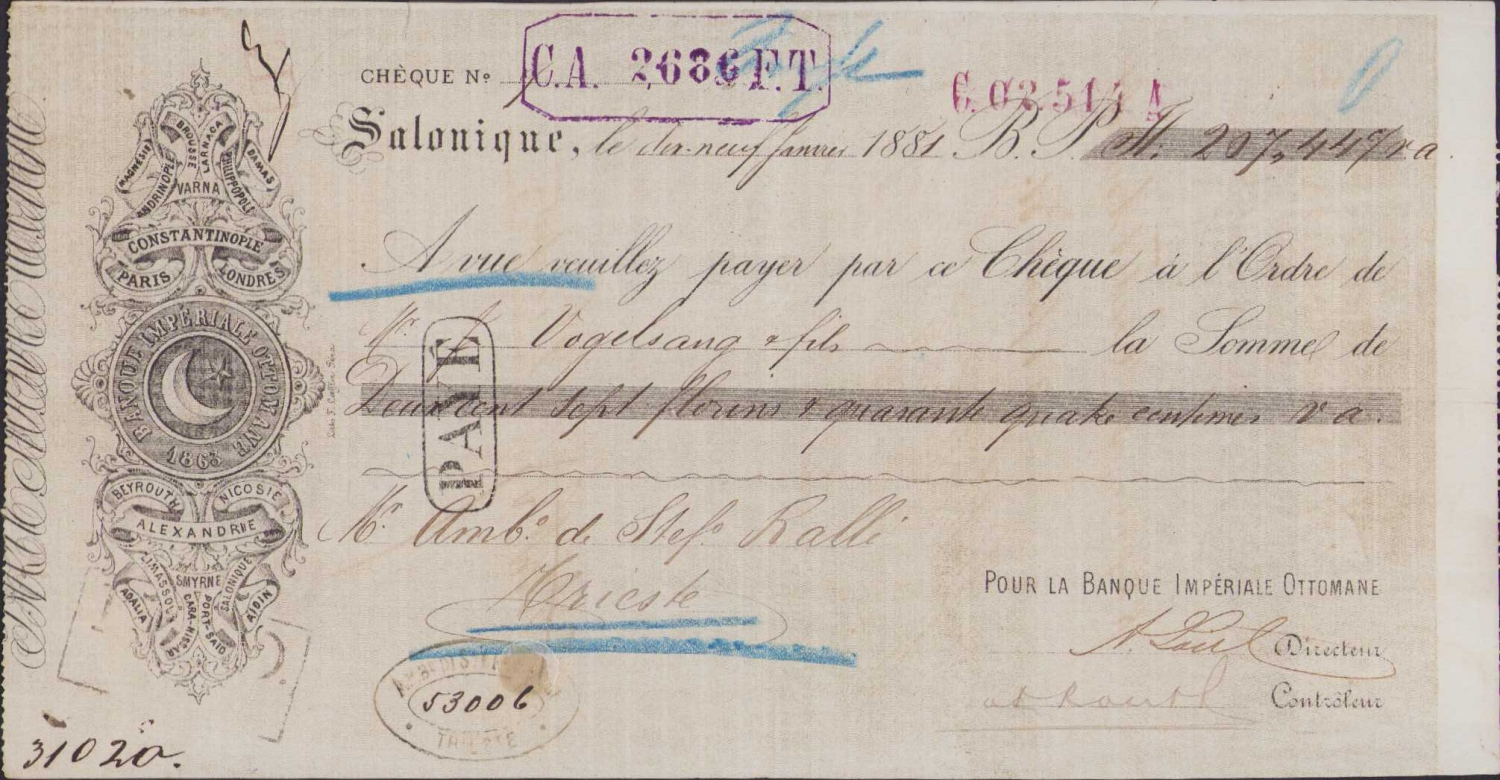 CHÈQUE Nº C.A. 2686 F.T.
Salonique, le dix-neuf Janvier 1881 B. P. fl. 207,44 v a
A vue veuillez payer par ce Chèque à l'Ordre de
Mr. J Vogelsang & fils la Somme de
Deux cent sept florins & quarante quatre centimes v a.
PAYÉ
Mr. Ambº. de Stefº. Ralli
Trieste
POUR LA BANQUE IMPÉRIALE OTTOMANE
Directeur
Contrôleur
53006
TRIESTE
31020.
MAGNÉSIE
ANDRINOPLE
BROUSSE
LARNACA
PHILIPPOPOLI
DAMAS
VARNA
CONSTANTINOPLE
PARIS
LONDRES
BANQUE IMPÉRIALE OTTOMANE
1863
BEYROUTH
NICOSIE
ALEXANDRIE
ADALIA
LIMASSOL
SMYRNE
CARA-HISSAR
PORT-SAÏD
SALONIQUE
AIDIN